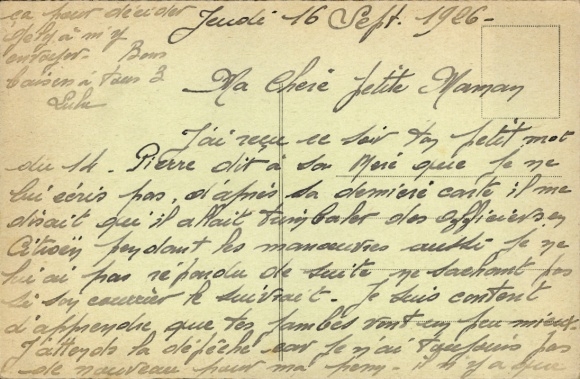 Jeudi 16 Sept. 1926-
Ma Chère petite Maman
J'ai reçu ce soir ton petit mot
du 14. Pierre dit à sa Mère que je ne
lui écris pas, d'après sa dernière carte il me
disait qu'il allait trimbaler des officiers en
Citroën pendant les manœuvres aussi je ne
lui ai pas répondu de suite ne sachant pas
si son courrier le suivrait. Je suis content
d'apprendre que tes jambes vont un peu mieux.
J'attends la dépêche car je n'ai toujours pas
de nouveau pour ma perm. il n'y a que
ça pour décider
à m'y
envoyer. Bons
baisers à tous 3
Lulu